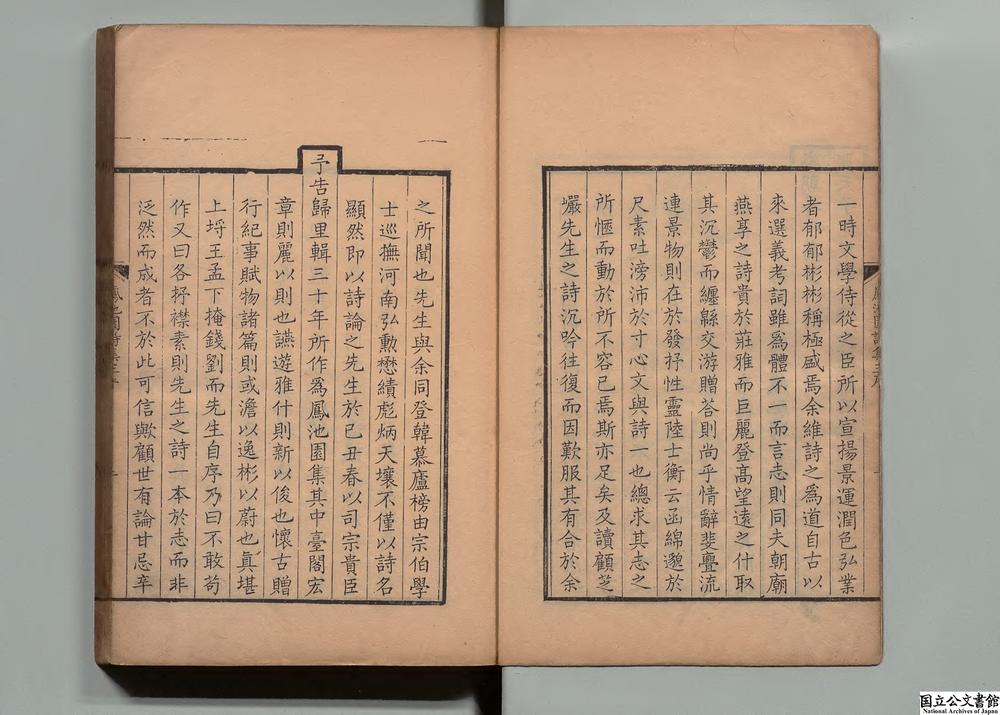 一時文學侍從之臣所以宣揚景運潤色弘業
者郁郁彬彬稱極盛焉余維詩之爲道自古以
來選義考詞雖爲體不一而言志則同夫朝廟
燕享之詩貴於莊雅而巨麗登高望遠之什取
其沉鬱而纏緜交游贈荅則尚乎情辭斐亹流
連景物則在於發抒性靈陸士衡云函綿邈於
尺素吐滂沛於寸心文與詩一也總求其志之
所愜而動於所不容已焉斯亦足矣及讀顧芝
巖先生之詩沉吟往復而因歎服其有合於余
之所聞也先生與余同登韓慕廬榜由宗伯學
士巡撫河南弘勲懋績彪炳天壤不僅以詩名
顯然即以詩論之先生於己丑春以司宗貴臣
予告歸里輯三十年所作爲鳳池園集其中臺閣宏
章則麗以則也讌遊雅什則新以俊也懷古贈
行紀事賦物諸篇則或澹以逸彬以蔚也真堪
上埒王孟下掩錢劉而先生自序乃曰不敢苟
作又曰各抒襟素則先生之詩一本於志而非
泛然而成者不於此可信歟顧世有論甘忌辛
国立公文書館
National Archives of Japan